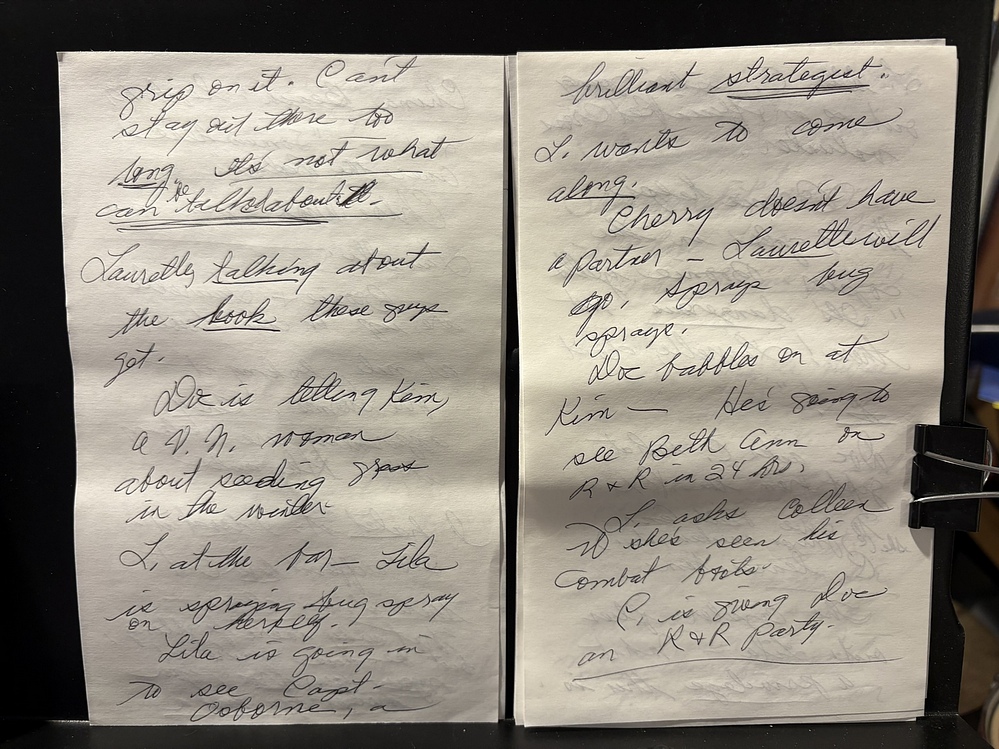 grip on it. Can't
stay out there too
long. It's not what
can be talked about.
Laurette's talking about
the book these guys
get.
Doc is telling Kim,
a V.N. woman
about seeding grass
in the winter.
L. at the bar — Lila
is spraying bug spray
on herself.
Lila is going in
to see Capt.
Osborne, a
brilliant strategist.
L. wants to come
along.
Cherry doesn't have
a partner — Laurette will
go. Sprays bug
spraye.
Doc babbles on at
Kim — He's going to
see Beth Ann on
R & R in 24 hrs.
L. asks Colleen
if she's seen his
combat boots.
C. is giving Doc
an R & R party.